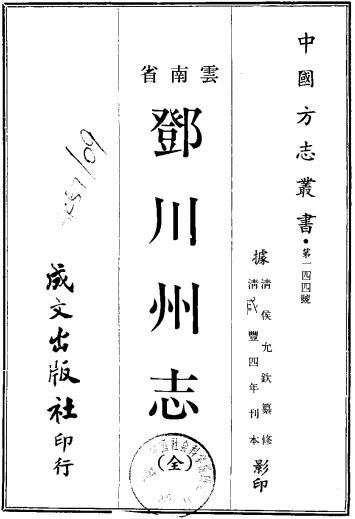 中國方志叢書·第一四四號
據清侯允欽纂修
清咸豐四年刊本
影印
雲南省
鄧川州志
(全)
成文出版社印行